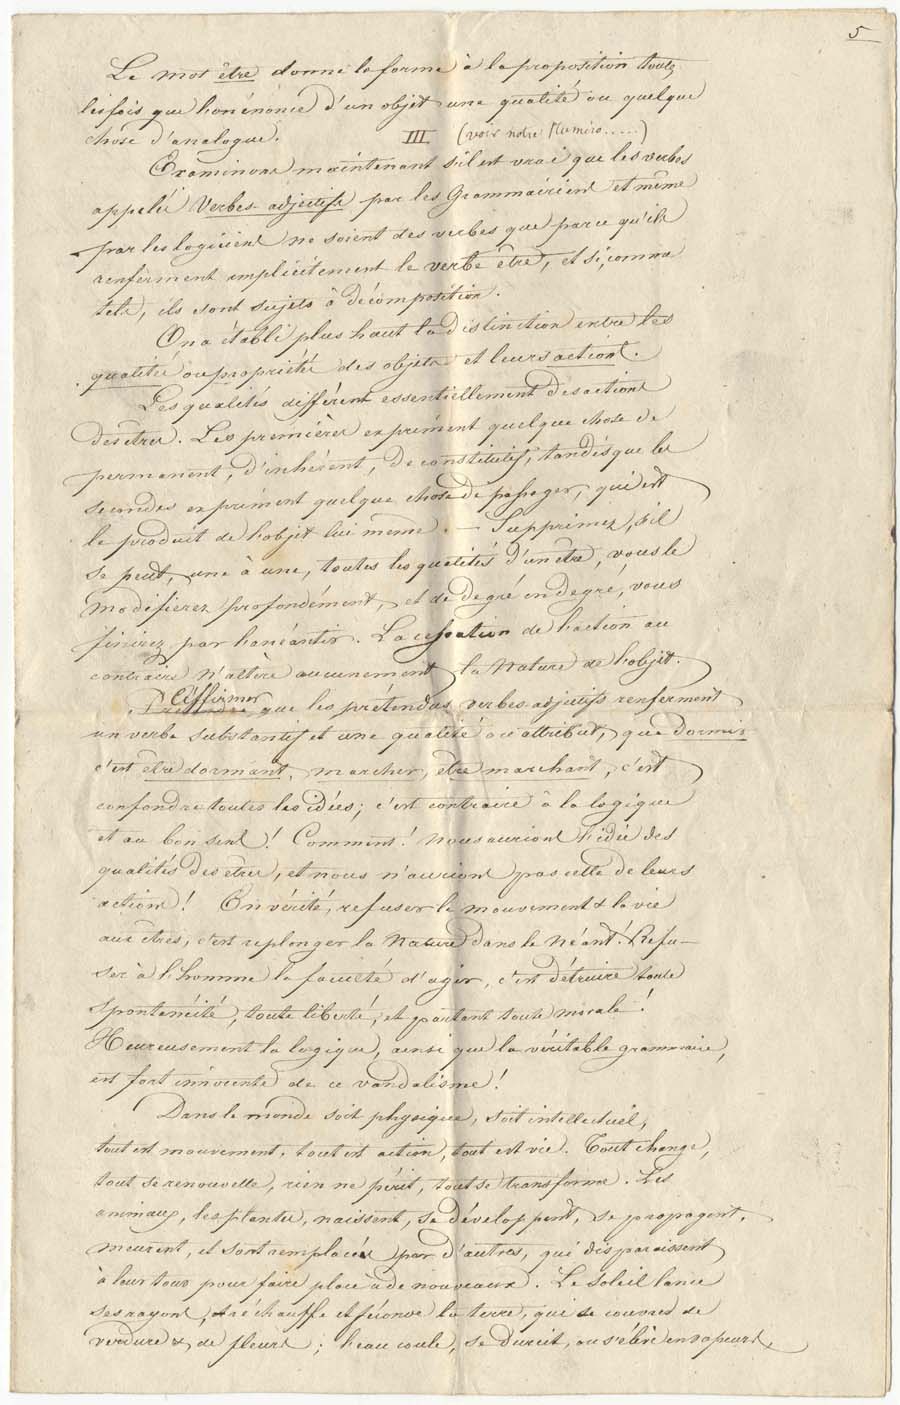 5
Le mot être donne la forme à la proposition toutes
les fois que l'on énonce d'un objet une qualité ou quelque
chose d'analogue. III (voir notre Numéro.....)
Examinons maintenant s'il est vrai que les verbes
appelés Verbes-adjectifs par les Grammairiens et même
par les logiciens ne soient des verbes que parce qu'ils
renferment implicitement le verbe être, et si, comme
tels, ils sont sujets à décomposition.
On a établi plus haut la distinction entre les
qualités ou propriétés des objets et leurs actions.
Les qualités diffèrent essentiellement des actions
des êtres. Les premières expriment quelque chose de
permanent, d'inhérent, de constitutif, tandis que les
secondes expriment quelque chose de passager, qui est
le produit de l'objet lui même. — Supprimez, s'il
se peut, une à une, toutes les qualités d'un être, vous le
modifierez profondément, et de degré en degré, vous
finirez par l'anéantir. La cessation de l'action au
contraire n'altère aucunement la Nature de l'objet.
Affirmer que les prétendus verbes-adjectifs renferment
un verbe substantif et une qualité ou attribut, que dormir
c'est être dormant, marcher, être marchant, c'est
confondre toutes les idées; c'est contraire à la logique
et au bon sens! Comment! nous aurions l'idée des
qualités des êtres, et nous n'aurions pas celle de leurs
actions! En vérité, refuser le mouvement & la vie
aux êtres, c'est replonger la Nature dans le Néant! Refu-
ser à l'homme la faculté d'agir, c'est détruire toute
spontanéité, toute liberté, et partant toute morale!
Heureusement la logique, ainsi que la véritable grammaire,
est fort innocente de ce vandalisme!
Dans le monde soit physique, soit intellectuel,
tout est mouvement, tout est action, tout est vie. Tout change,
tout se renouvelle, rien ne périt, tout se transforme. Les
animaux, les plantes, naissent, se développent, se propagent,
meurent, et sont remplacés par d'autres, qui disparaissent
à leur tour pour faire place à de nouveaux. Le soleil lance
ses rayons, réchauffe et féconde la terre, qui se couvre de
verdure & de fleurs; l'eau coule, se durcit, ou s'élève en vapeurs,